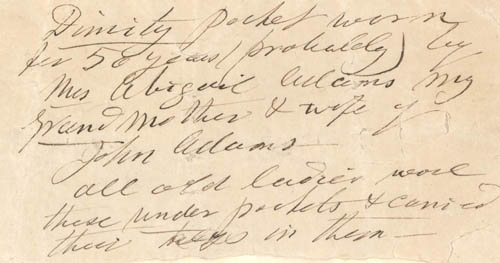 Dimity pocket worn
for 50 years (probably) by
Mrs Abigail Adams my
grand mother & wife of
John Adams—
all old ladies wore
these under pockets & carried
their keys in them—